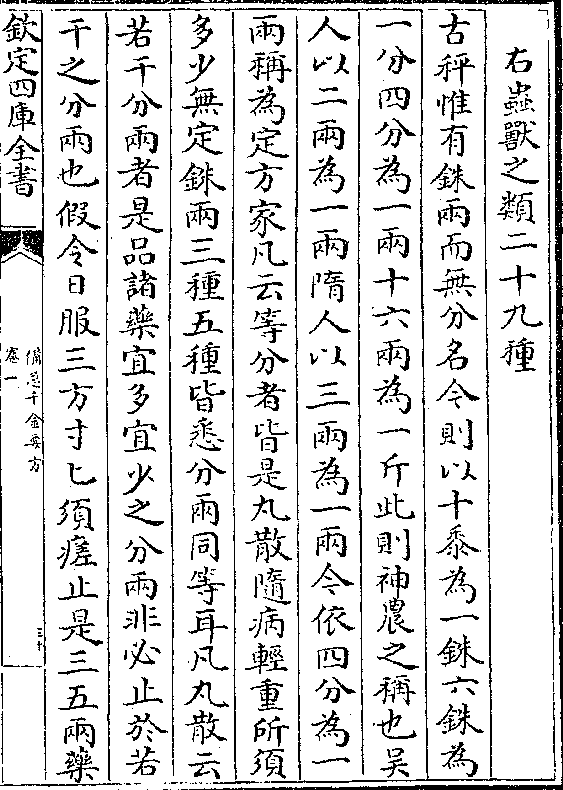 右蟲獸之類二十九種
古秤惟有銖兩而無分名今則以十黍為一銖六銖為
一分四分為一兩十六兩為一斤此則神農之稱也吴
人以二兩為一兩隋人以三兩為一兩今依四分為一
兩稱為定方家凡云等分者皆是丸散隨病輕重所須
多少無定銖兩三種五種皆悉分兩同等耳凡丸散云
若干分兩者是品諸藥宜多宜少之分兩非必止於若
干之分兩也假令日服三方寸匕須瘥止是三五兩藥
欽定四庫全書
備急千金要方
卷一
三十